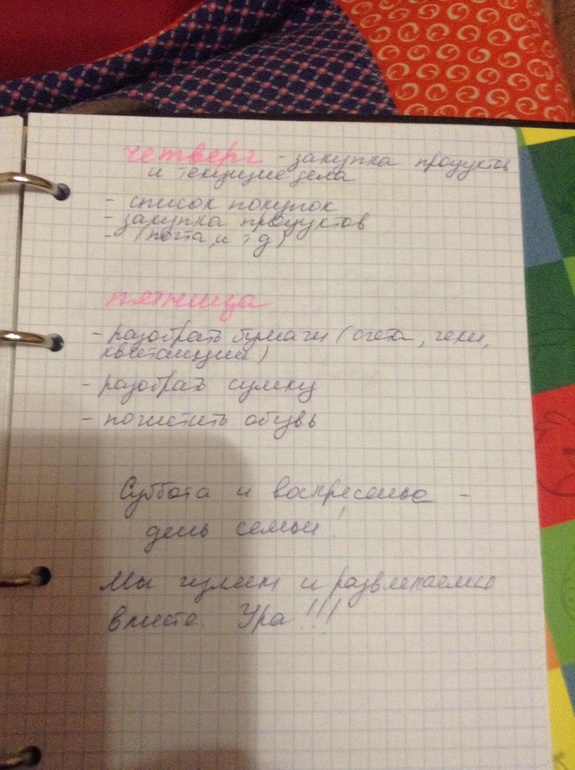 четверг - закупка продуктов
и текущие дела
- список покупок
- закупка продуктов
- (почта, и тд)
пятница
- разобрать бумаги (счета, чеки,
квитанции)
- разобрать сумку
- почистить обувь
Суббота и воскресенье -
день семьи!
Мы гуляем и развлекаемся
вместе Ура!!!